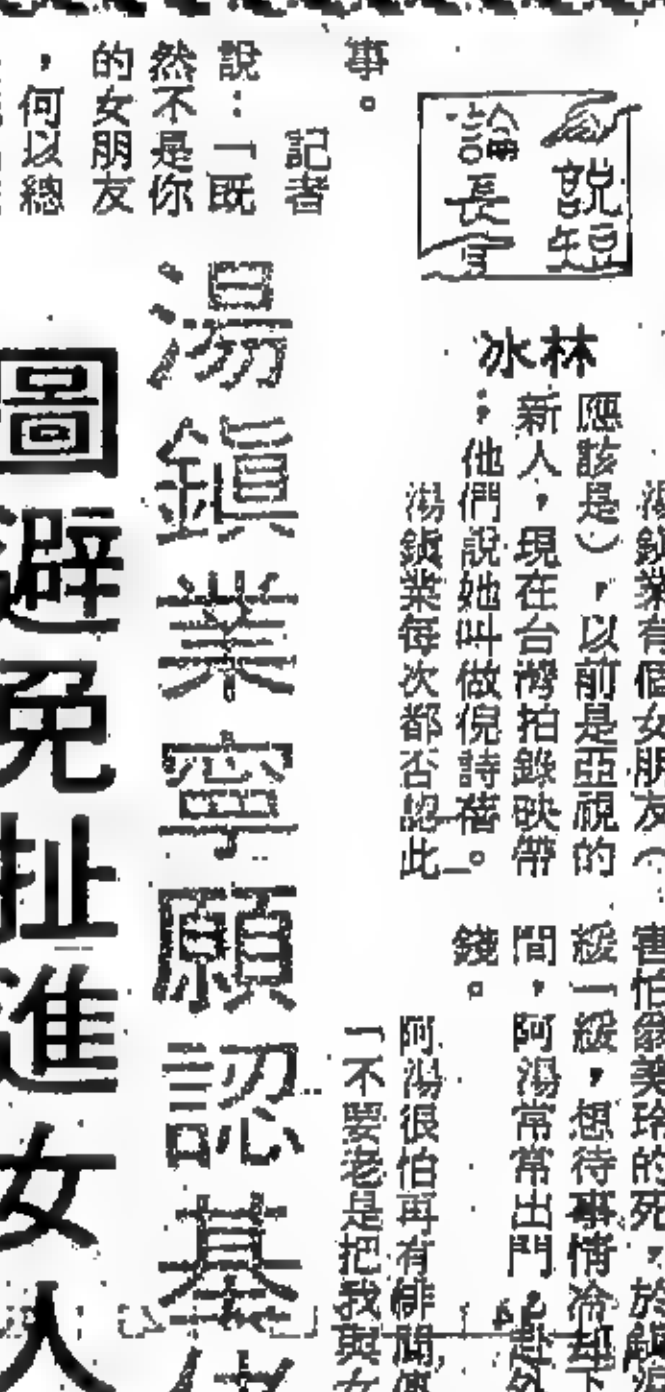 說短
論長
林冰
湯鎮業有個女朋友（
應該是），以前是亞視的
新人，現在台灣拍錄映帶
：他們說她叫做倪詩蓓。
湯鎮業每次都否認此
事。
記者
說：「既
然不是你
的女朋友
，何以總
湯鎮業寧願認基
圖避免扯進女人
害怕翁美玲的死，於
緩一緩，想待事情冷却下
間，阿湯常常出門，赴外
錢。
阿湯很怕再有緋聞傳
「不要老是把我與女